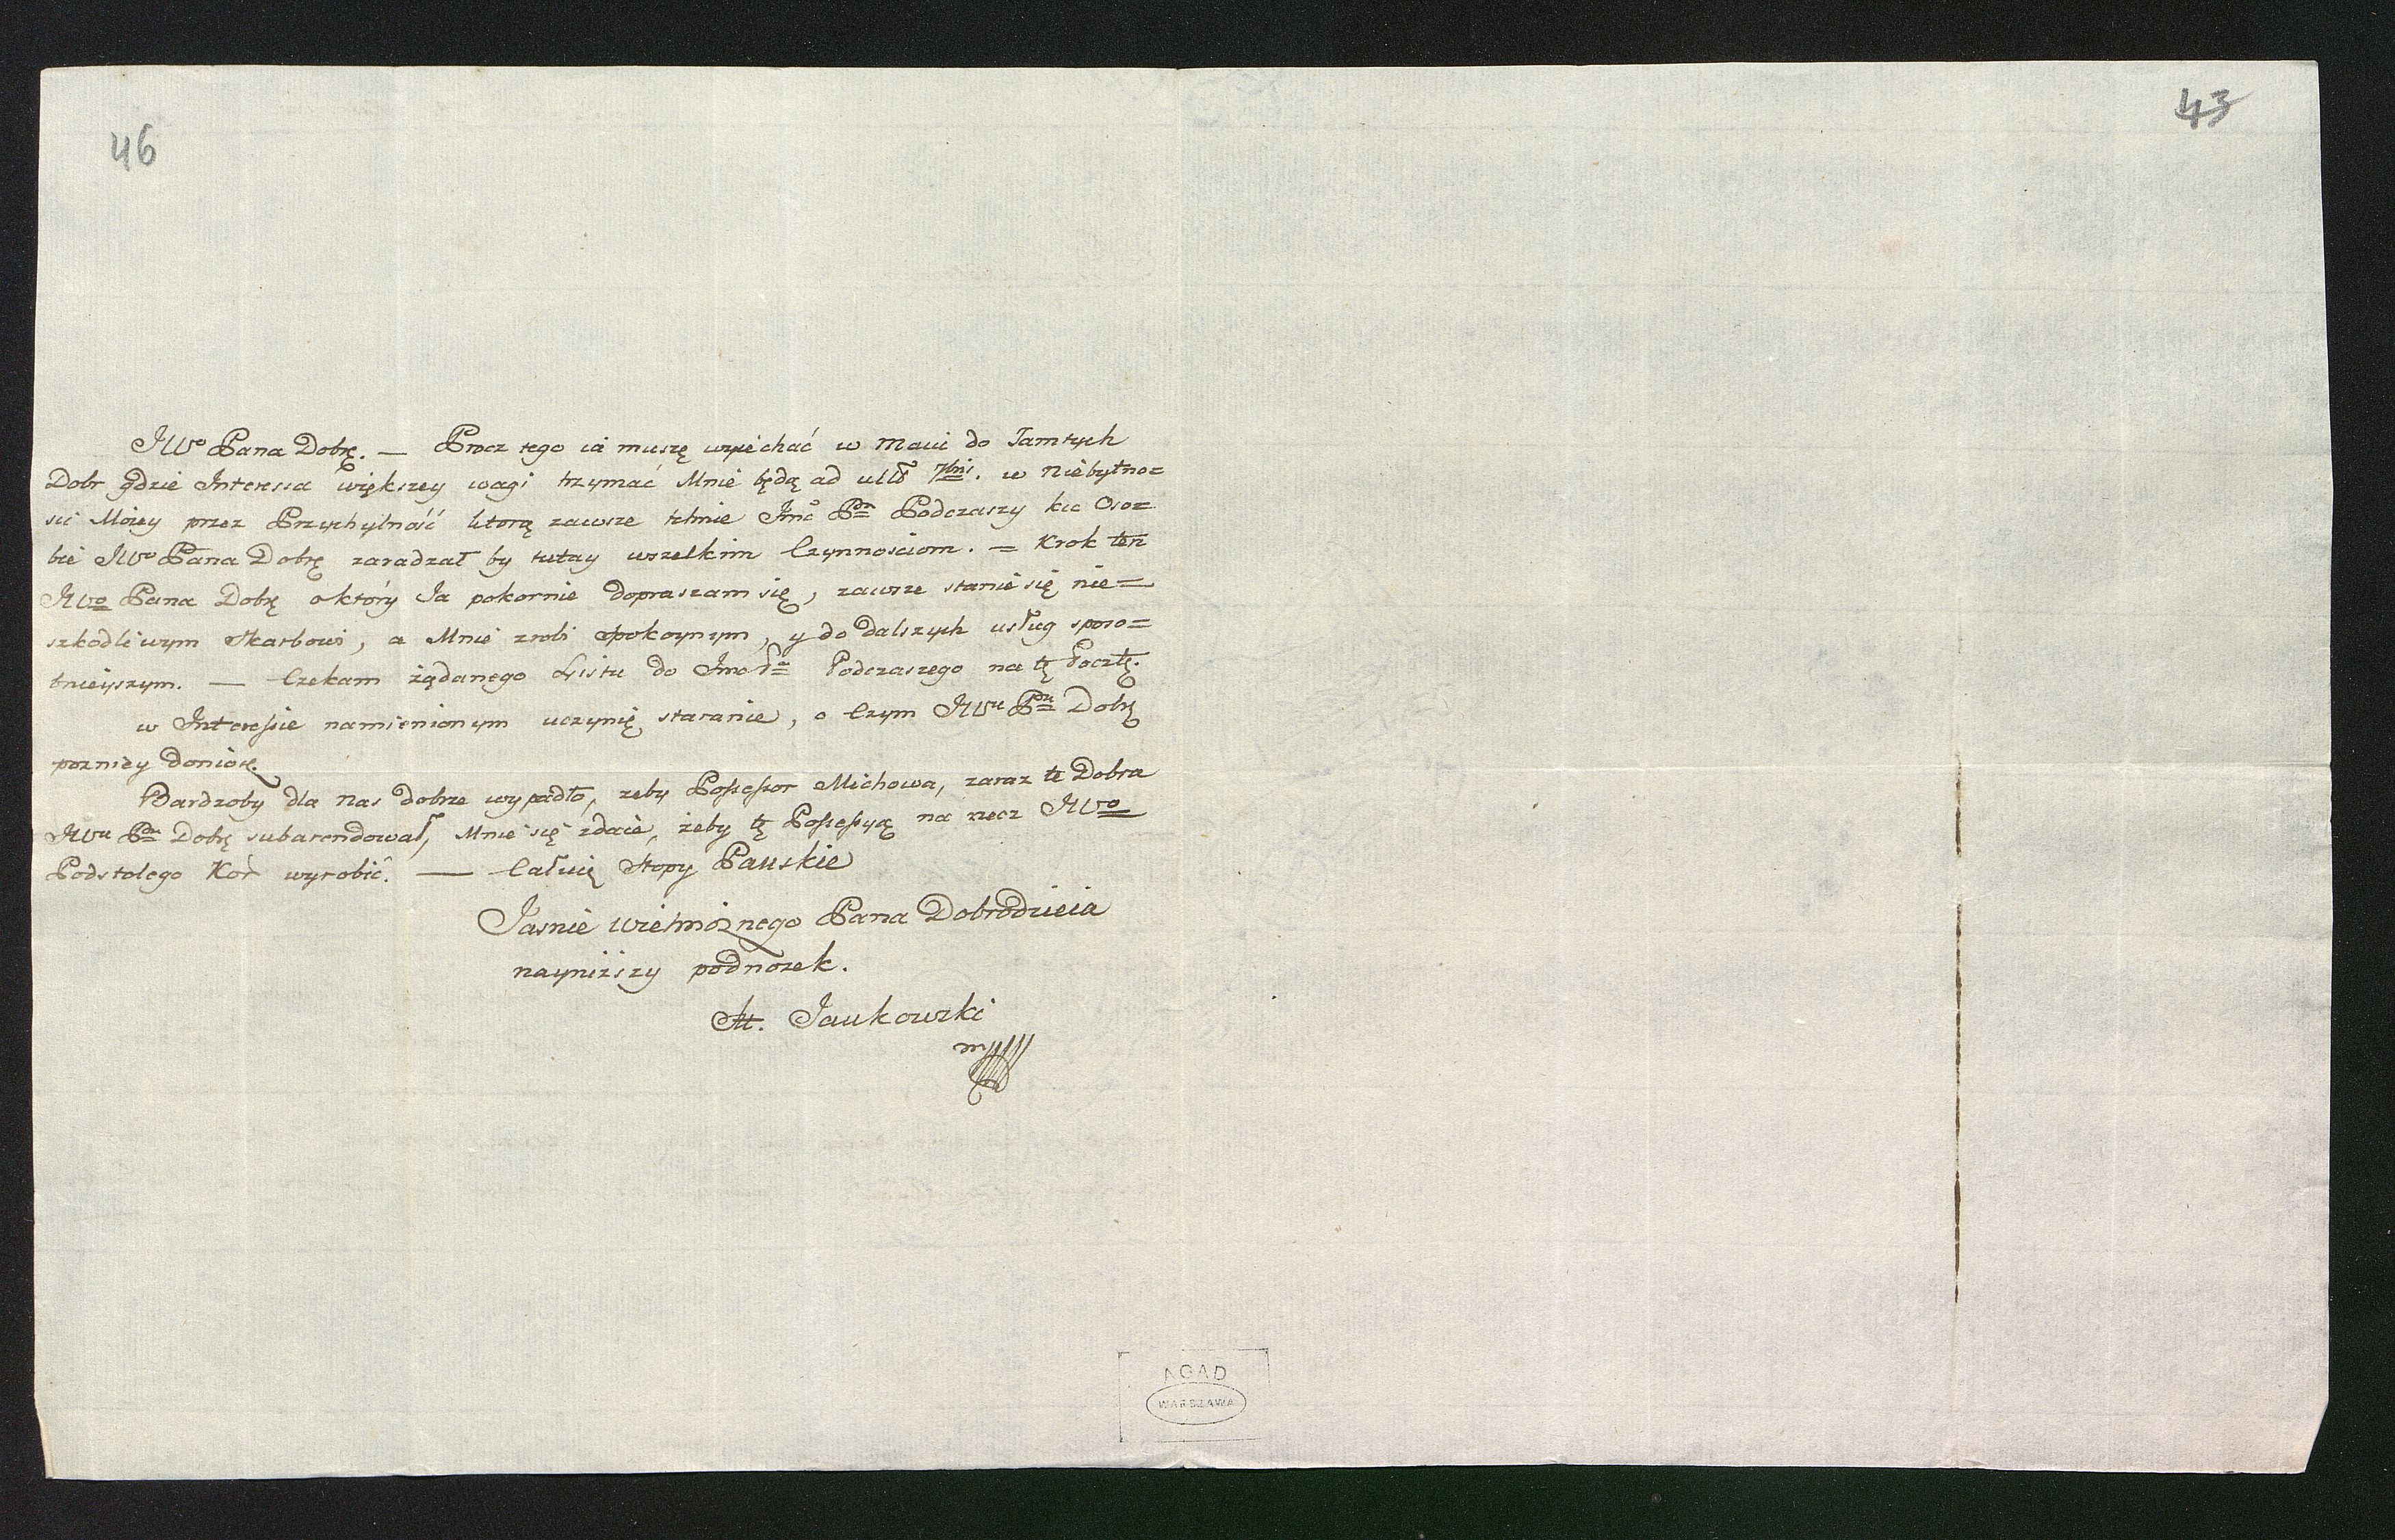 46
43
JWo Pana Dobrę. — Procz tego ia muszę wyiechać w Maiu do Tamtych
Dobr gdzie Interessa większey wagi trzymać Mnie będą ad 7bris. w Niebytno=
sci Moiey przez Przychylność ktorą zawsze tchnie Jmć Pan Podczaszy ku Oso=
bie JWo Pana Dobrę zaradzał by tutay wszelkim Czynnosciom. = Krok ten
JWo Pana Dobrę o który Ja pokornie dopraszam się, zawsze stanie się nie=
szkodliwym Skarbowi, a Mnie zrobi spokoynym, y do dalszych usług sposo=
bnieyszym. — Czekam żądanego Listu do Jmo Pa Podczaszego na tę Pocztę.
w Interessie namienionym uczynię staranie, o Czym JWu Pnu Dobrę
pozniey doniosę.
Bardzoby dla nas dobrze wypadło, zeby Possessor Michowa, zaraz te Dobra
JWu Panu Dobrę subarendował, Mnie się zdaie, żeby tę Possessyą na rzecz JWo
Podstolego Kor wyrobić. — Całuię Stopy Pańskie
Jasnie Wielmożnego Pana Dobrodzieia
nayniższy podnozek.
M. Jankowski
AGAD
WARSZAWA